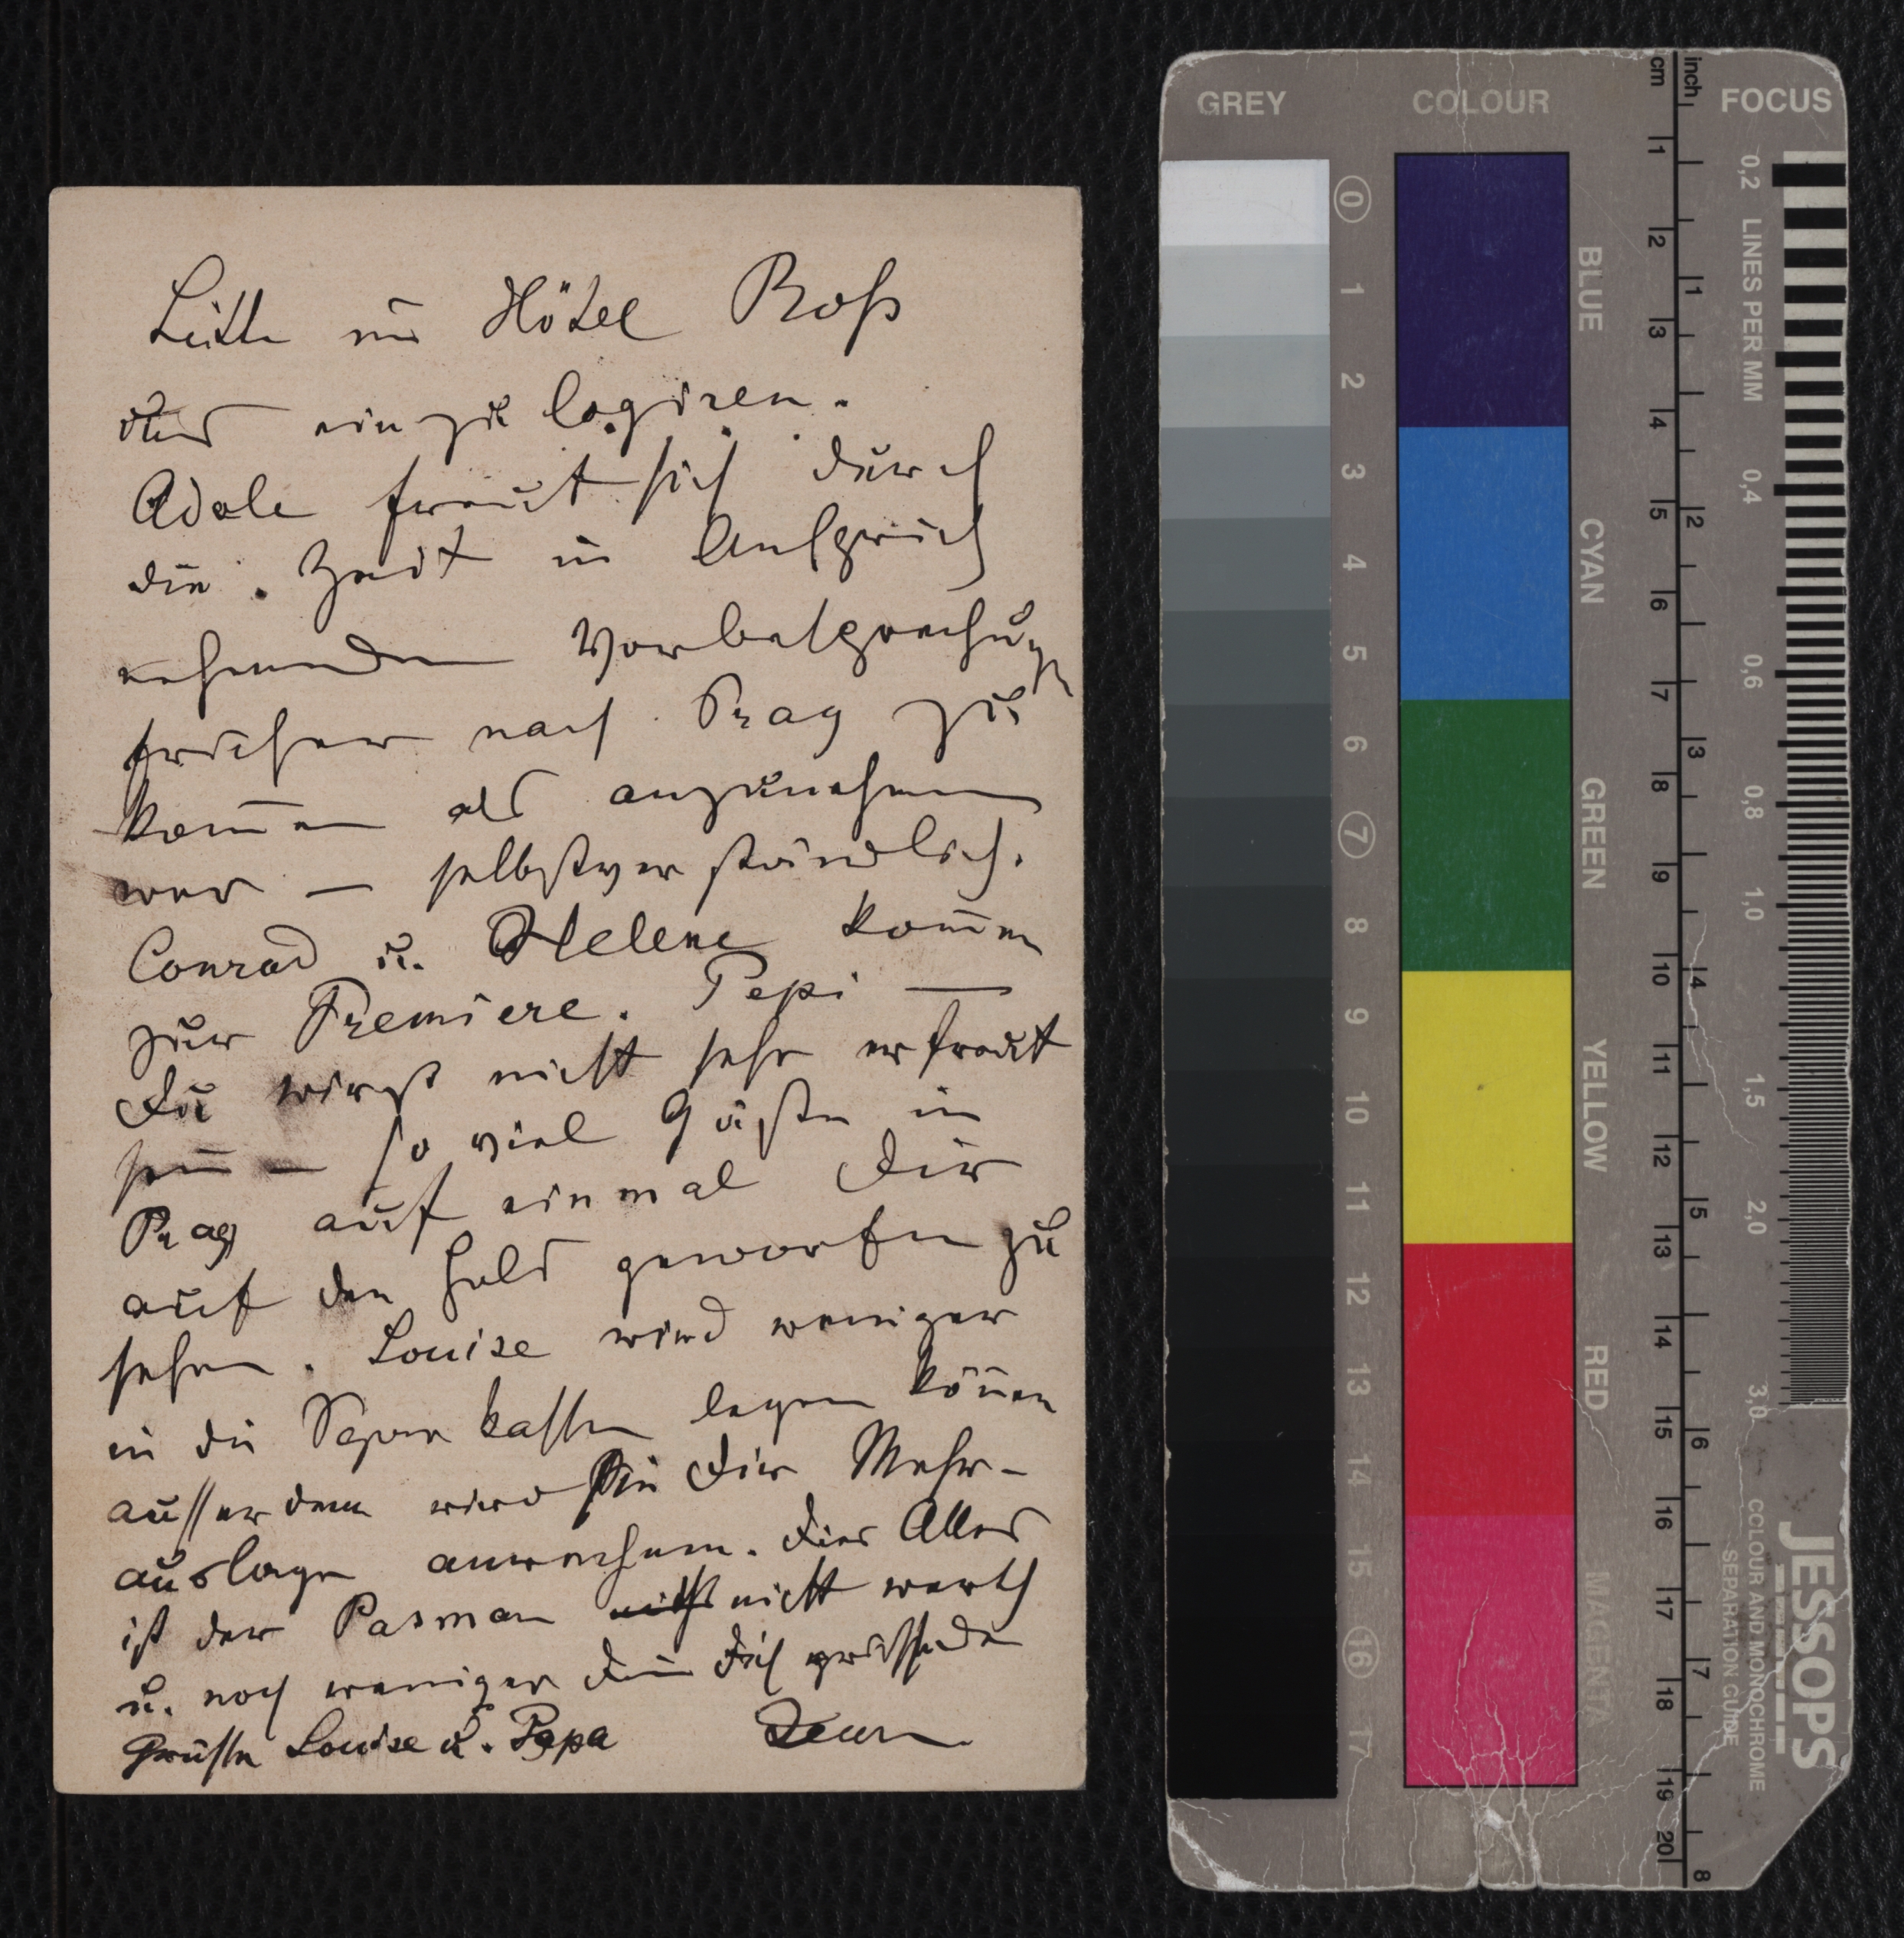 Bitte im Hôtel Roß
uns einzulogiren.
Adele freut sich durch
die Zeit in Anspruch
nehmenden Vorbesprechungen
früher nach Prag zu
kom̄en als anzunehmen
war — selbstverständlich.
Conrad u. Helene kom̄en
zur Premiere. Pepi —
Du wirst nicht sehr erfreut
sein — so viel Gäste in
Prag auf einmal Dir
auf den Hals geworfen zu
sehen. Louise wird weniger
in die Sparkasse legen kön̄en
ausserdem wird sie Dir Mehr-
auslagen anrechnen. Dies Alles
ist der Pasman nicht werth
u. noch weniger Dein Dich grüssender
Grüsse Louise u. Papa Jean
GREY
COLOUR
FOCUS
cm
inch
0 1 2 3 4 5 6 7 8 9 10 11 12 13 14 15 16 17
BLUE
CYAN
GREEN
YELLOW
RED
MAGENTA
1 2 3 4 5 6 7 8 9 10 11 12 13 14 15 16 17 18 19 20
1 2 3 4 5 6 7 8
0,2 LINES PER MM 0,4 0,6 0,8 1,0 1,5 2,0 3,0
JESSOPS
COLOUR AND MONOCHROME
SEPARATION GUIDE